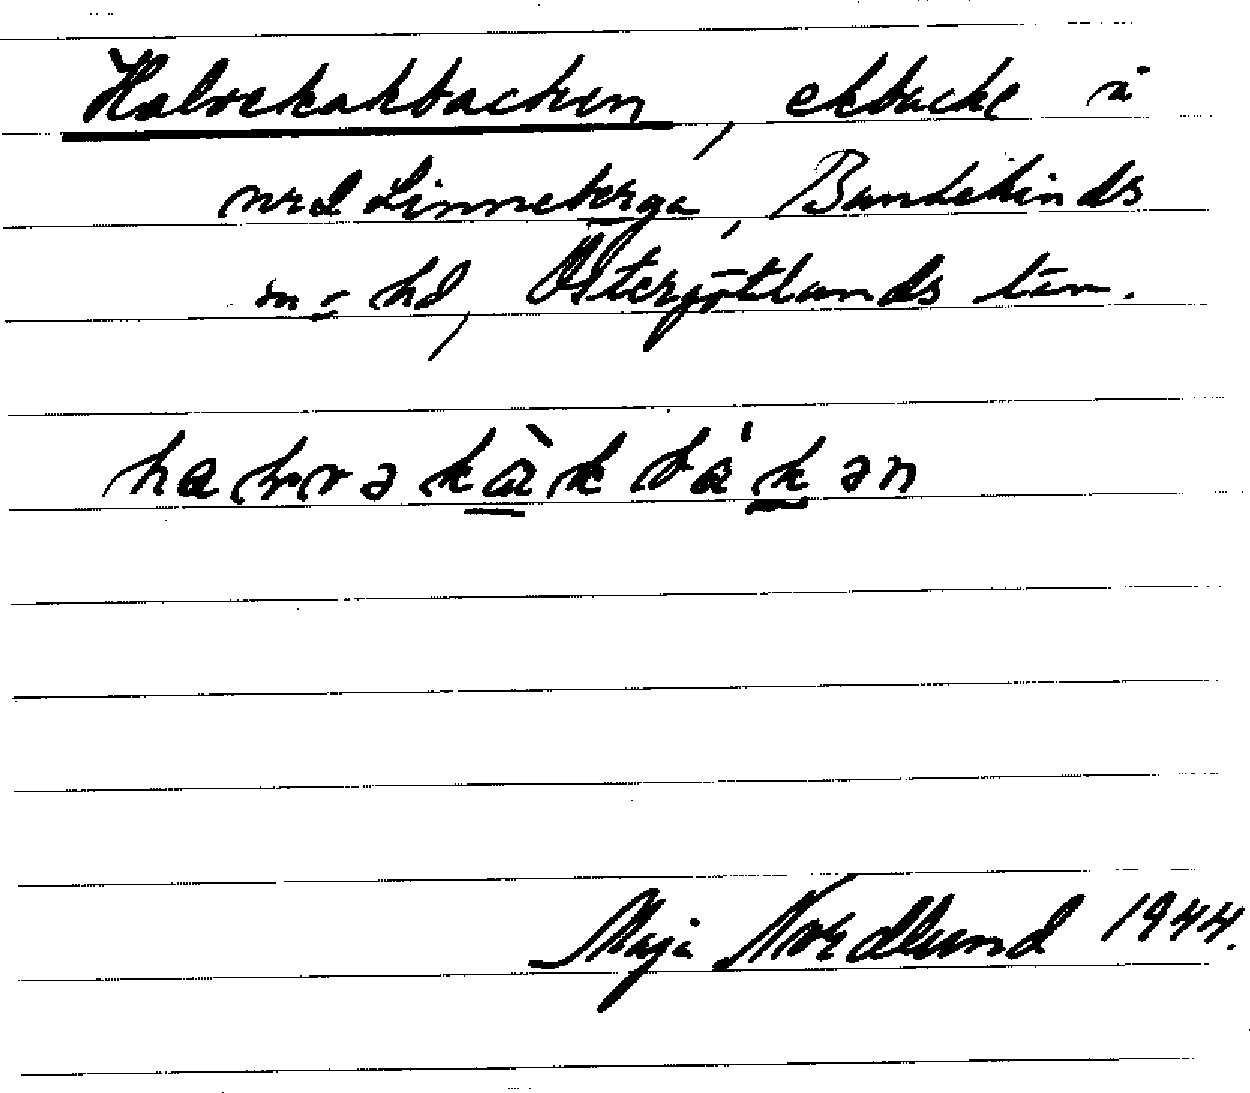 Halvekakbacken, ekbacke å
ned Linneberga, Bankekinds
sn o hd, Östergötlands län.
halvəkàkbákən
Maja Nordlund 1944.